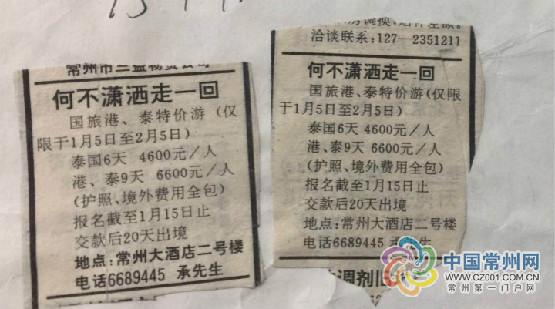 常州市三益物资公司
何不潇洒走一回
国旅港、泰特价游(仅
限于1月5日至2月5日)
泰国6天 4600元/人
港、泰9天 6600元/人
(护照、境外费用全包)
报名截至1月15日止
交款后20天出境
地点:常州大酒店二号楼
电话6689445 承先生
洽谈联系:127-2351211
何不潇洒走一回
国旅港、泰特价游(仅限
于1月5日至2月5日)
泰国6天 4600元/人
港、泰9天 6600元/人
(护照、境外费用全包)
报名截至1月15日止
交款后20天出境
地点:常州大酒店二号楼
电话6689445 承先生
调剂旧
中国常州网
WWW.CZ001.COM.CN
常州第一门户网